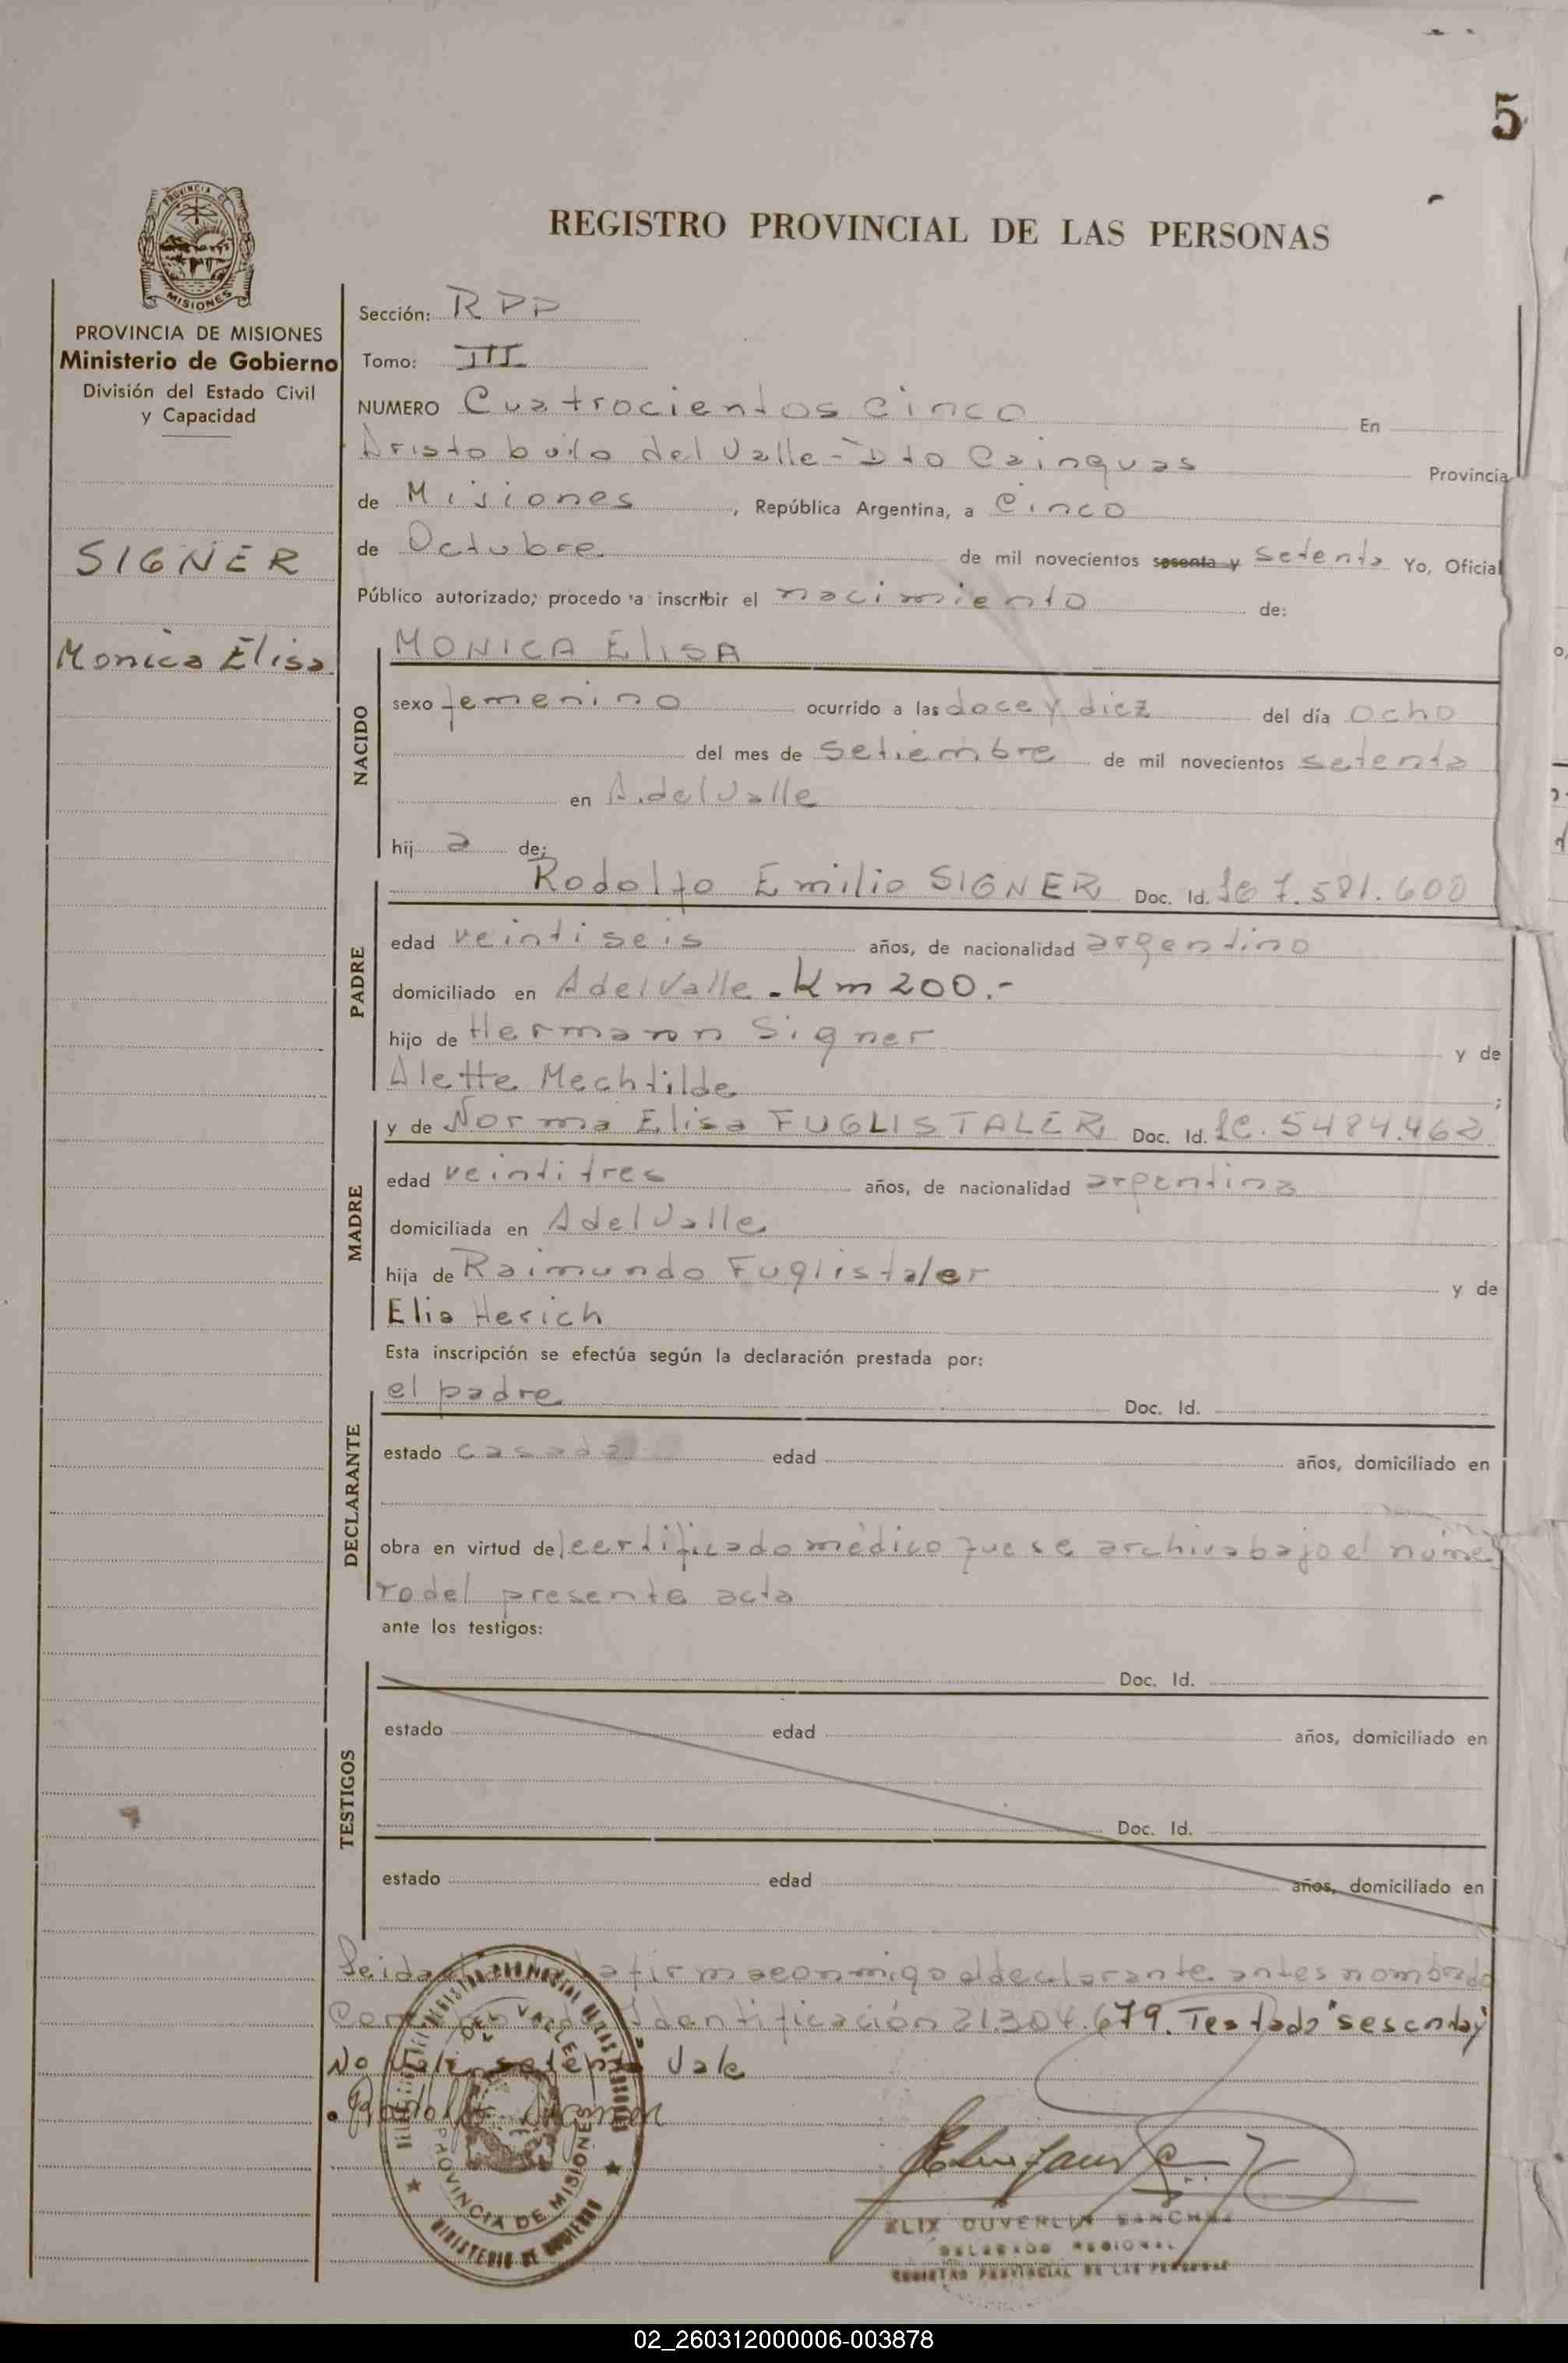 5
REGISTRO PROVINCIAL DE LAS PERSONAS
PROVINCIA DE
MISIONES
PROVINCIA DE MISIONES
Ministerio de Gobierno
División del Estado Civil
y Capacidad
SIGNER
Monica Elisa
Sección: RPP
Tomo: III
NUMERO Cuatrocientos cinco En
Aristobulo del Valle - Dto Cainguas Provincia
de Misiones, República Argentina, a Cinco
de Octubre de mil novecientos sesenta y setenta Yo, Oficial
Público autorizado; procedo a inscribir el nacimiento de:
NACIDO
MONICA ElISA
sexo femenino ocurrido a las doce y diez del día ocho
del mes de Setiembre de mil novecientos setenta
en A. del Valle
hij a de:
PADRE
Rodolfo Emilio SIGNER Doc. Id. LE 7.581.600
edad veintiseis años, de nacionalidad argentino
domiciliado en A del Valle - Km 200.-
hijo de Hermann Signer y de
Alette Mechtilde;
MADRE
y de Norma Elisa FUGLISTALER Doc. Id. LC. 5484.462
edad veintitres años, de nacionalidad argentina
domiciliada en A del Valle
hija de Raimundo Fuglistaler y de
Elia Herich
Esta inscripción se efectúa según la declaración prestada por:
DECLARANTE
el padre Doc. Id.
estado casada edad años, domiciliado en
obra en virtud del certificado médico que se archiva bajo el núme
ro del presente acta
ante los testigos:
TESTIGOS
Doc. Id.
estado edad años, domiciliado en
Doc. Id.
estado edad años, domiciliado en
Leida firma conmigo el declarante antes nombrado
Identificación 21.304.679. Testado "sesenta y"
No Vale, setenta Vale
DEL VALLE
PROVINCIA DE MISIONES
MINISTERIO DE GOBIERNO
ELIX DUVERLIN SANCHEZ
DELEGADO REGIONAL
REGISTRO PROVINCIAL DE LAS PERSONAS
02_260312000006-003878